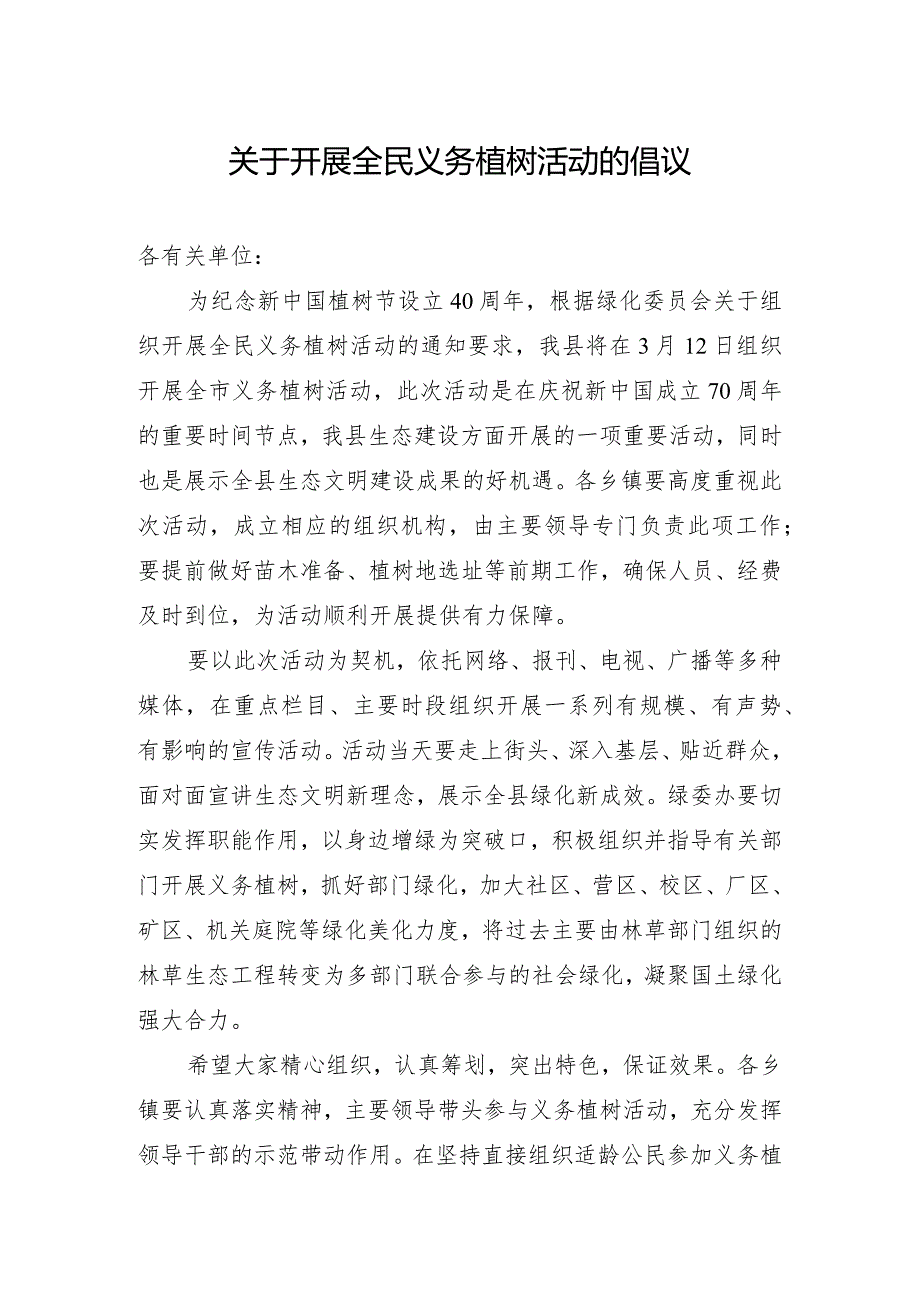 关于开展全民义务植树活动的倡议
各有关单位：
为纪念新中国植树节设立 40 周年，根据绿化委员会关于组
织开展全民义务植树活动的通知要求，我县将在 3 月 12 日组织
开展全市义务植树活动，此次活动是在庆祝新中国成立 70 周年
的重要时间节点，我县生态建设方面开展的一项重要活动，同时
也是展示全县生态文明建设成果的好机遇。各乡镇要高度重视此
次活动，成立相应的组织机构，由主要领导专门负责此项工作；
要提前做好苗木准备、植树地选址等前期工作，确保人员、经费
及时到位，为活动顺利开展提供有力保障。
要以此次活动为契机，依托网络、报刊、电视、广播等多种
媒体，在重点栏目、主要时段组织开展一系列有规模、有声势、
有影响的宣传活动。活动当天要走上街头、深入基层、贴近群众，
面对面宣讲生态文明新理念，展示全县绿化新成效。绿委办要切
实发挥职能作用，以身边增绿为突破口，积极组织并指导有关部
门开展义务植树，抓好部门绿化，加大社区、营区、校区、厂区、
矿区、机关庭院等绿化美化力度，将过去主要由林草部门组织的
林草生态工程转变为多部门联合参与的社会绿化，凝聚国土绿化
强大合力。
希望大家精心组织，认真筹划，突出特色，保证效果。各乡
镇要认真落实精神，主要领导带头参与义务植树活动，充分发挥
领导干部的示范带动作用。在坚持直接组织适龄公民参加义务植